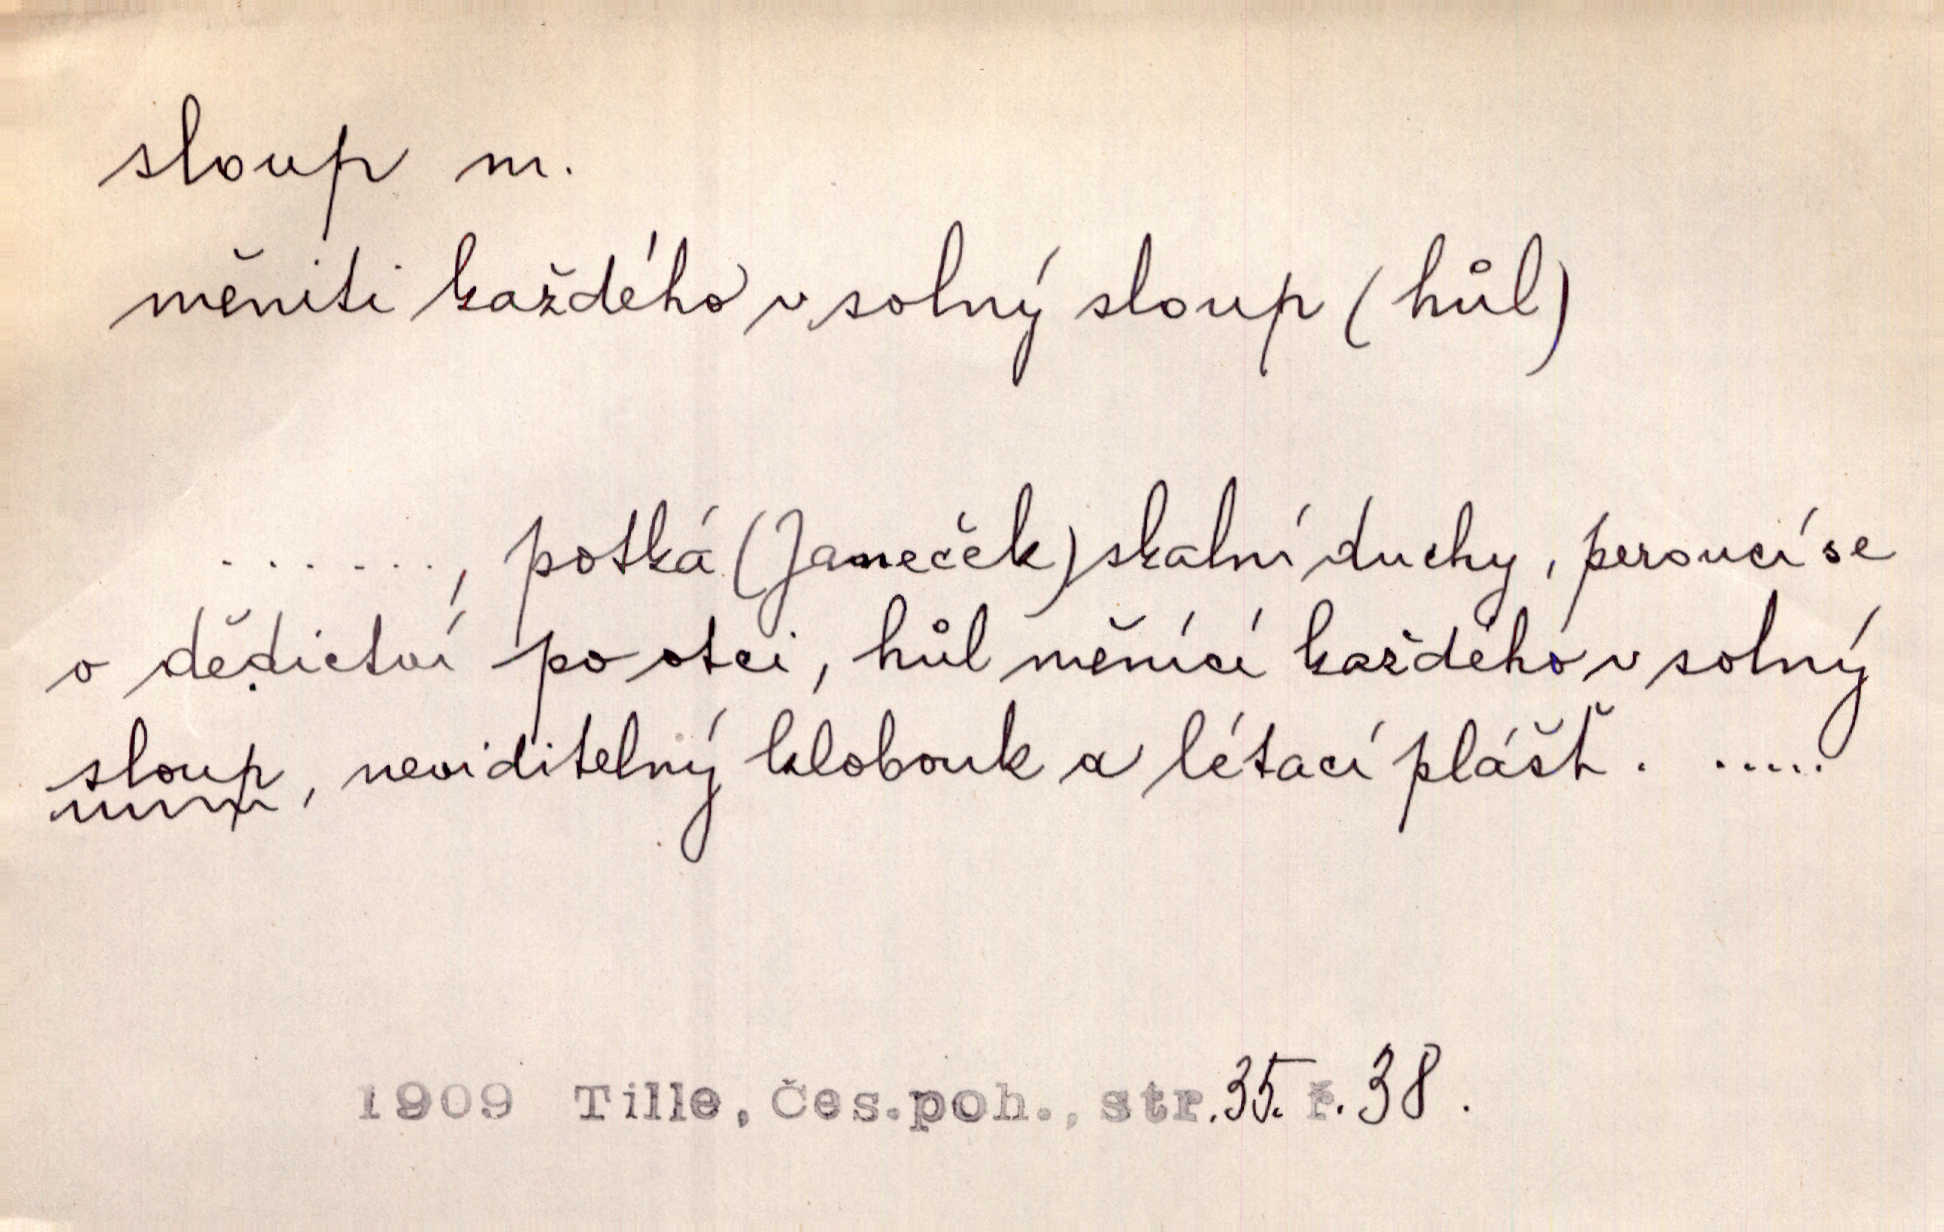 sloup m.
měniti každého v solný sloup (hůl)
......., potká (Janeček) skalní duchy, peroucí se
o dědictví po otci, hůl měnící každého v solný
sloup, neviditelný klobouk a létací plášť. .....
1909 Tille, Čes.poh., str.35. ř.38.